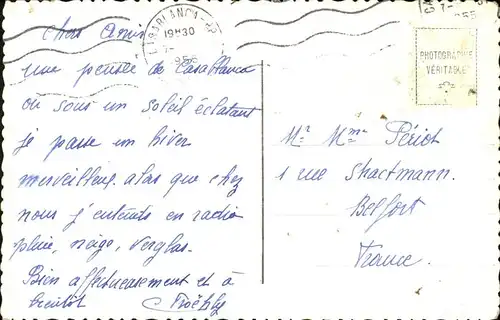 CASABLANCA
19H30
1955
PHOTOGRAPHIE
VÉRITABLE
chers amis
une pensée de Casablanca
ou sous un soleil éclatant
je passe un hiver
merveilleux alors que chez
nous j'entends en radio
pluie, neige, verglas.
Bien affectueusement et à
bientôt
Mr Mme Périot
1 rue Shactmann.
Belfort
France.